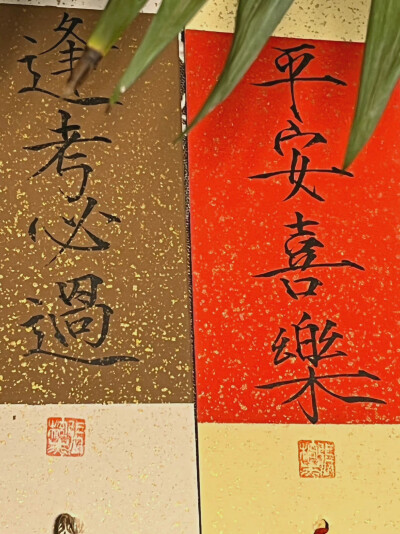 逢考必過
平安喜樂